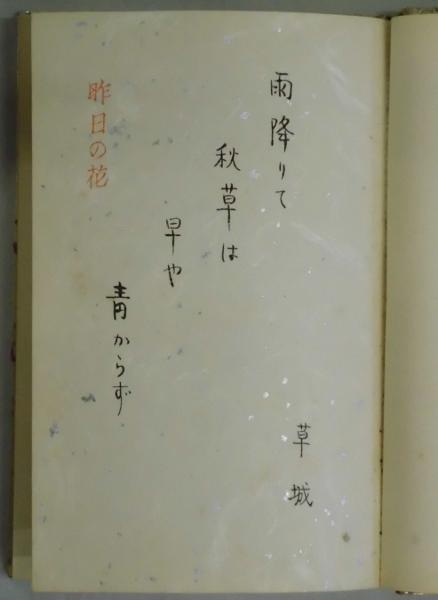 雨降りて
秋草は
早や
青からず
草城
昨日の花